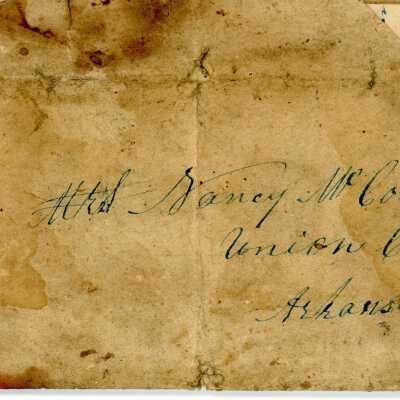 Mrs Nancy Mc Co
Union C
Arkans